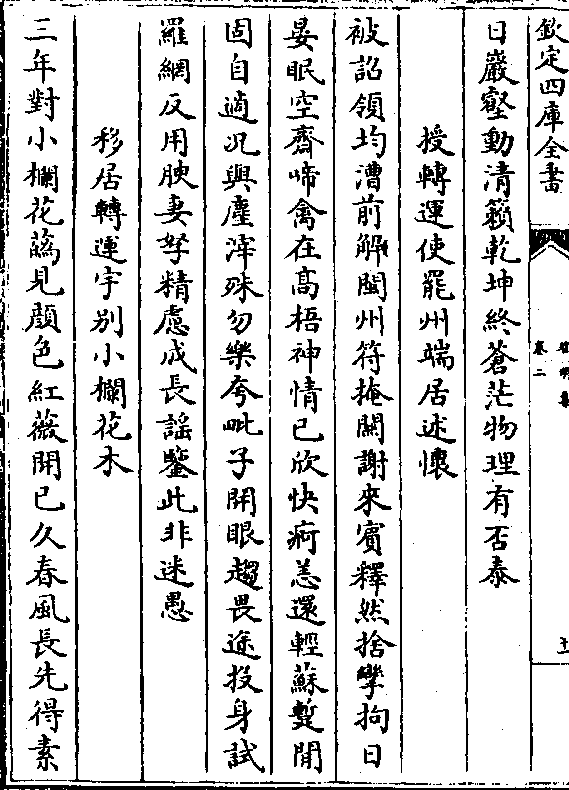 欽定四庫全書
卷二
日巖壑動清籟乾坤終蒼茫物理有否泰
授轉運使罷州端居述懷
被詔領均漕前解閩州符掩關謝來賓釋然捨攣拘日
晏眠空齋啼禽在高梧神情已欣快痾恙還輕蘇蹔閒
固自適况與塵滓殊勿樂夸毗子開眼趨畏途投身試
羅網反用腴妻孥精慮成長謡鑒此非迷愚
移居轉運宇别小欄花木
三年對小欄花蘤見顔色紅薇開已久春風長先得素